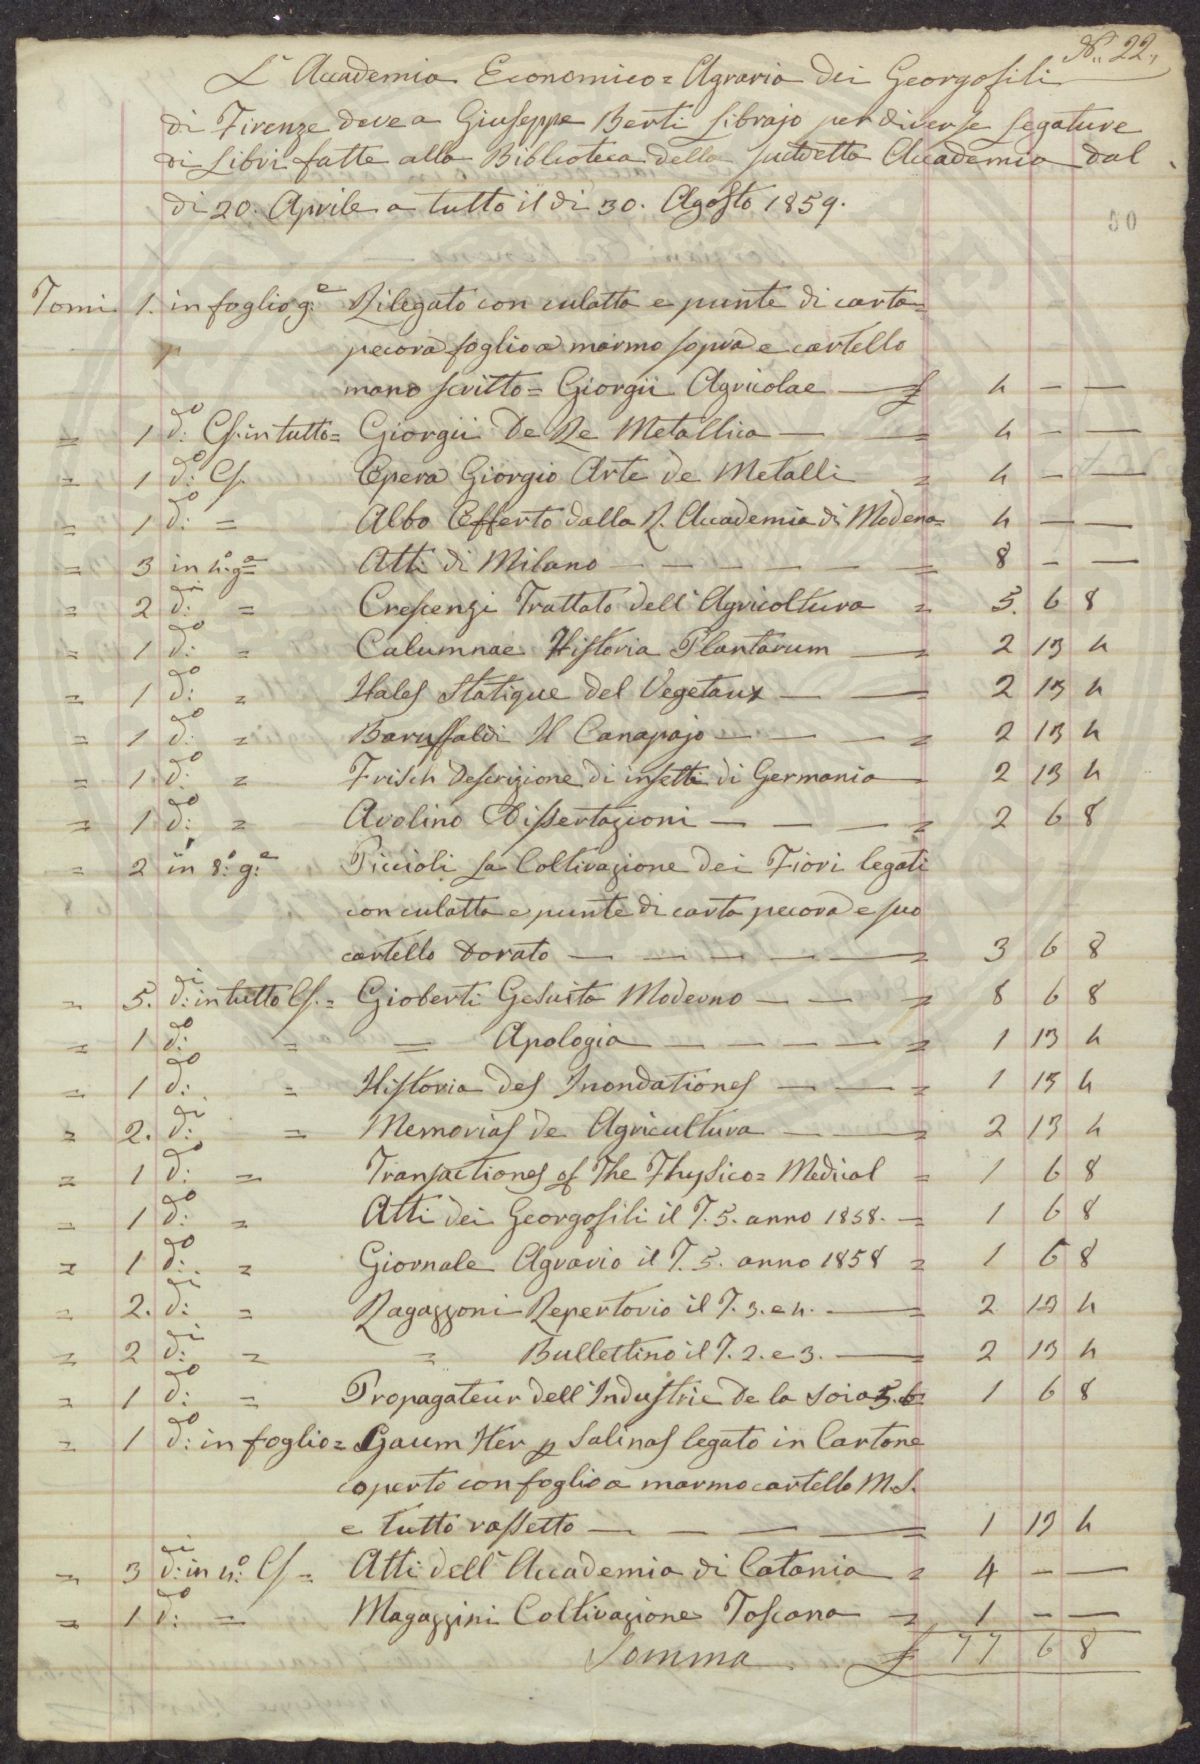 N.° 22.
L'Accademia Economico=Agraria dei Georgofili
di Firenze deve a Giuseppe Berti Librajo per diverse Legature
di Libri fatte alla Biblioteca della suddetta Accademia dal
di 20. Aprile a tutto il di 30. Agosto 1859.
30
Tomi 1. in foglio g.e Rilegato con culatta e punte di carta=
pecora foglio a marmo sopra e cartello
mano scritto = Giorgii Agricolae — £ 4 — —
= 1 d.o Cs. in tutto = Giorgii De Re Metallica — = 4 — —
= 1 d.o Cs. Opera Giorgio Arte de Metalli = 4 — —
= 1 d.o = Albo Offerto dalla R. Accademia di Modena = 4 — —
= 3 in 4.o g.e Atti di Milano — — — — — = 8 — —
= 2 d.i = Crescenzi Trattato dell'Agricoltura = 5. 6 8
= 1 d.o = Columnae Historia Plantarum — = 2 13 4
= 1 d.o = Hales Statique del Vegetaux — — = 2 13 4
= 1 d.o = Baruffaldi Il Canapajo — — — = 2 13 4
= 1 d.o = Frisch Descrizione di insetti di Germania = 2 13 4
= 1 d.o = Avolino Dissertazioni — — — = 2 6 8
= 2 in 8.o g.e Piccioli La Coltivazione dei Fiori legati
con culatta e punte di carta pecora e suo
cartello Dorato — — — — — = 3 6 8
= 5. d.i in tutto Cs. = Gioberti Gesuita Moderno — — = 8 6 8
= 1 d.o = = Apologia — — — — = 1 13 4
= 1 d.o = Historia des Inondationes — — = 1 13 4
= 2. d.i = Memorias de Agricultura — — = 2 13 4
= 1 d.o = Transactiones of The Physico=Medical = 1 6 8
= 1 d.o = Atti dei Georgofili il T. 5. anno 1858. = 1 6 8
= 1 d.o = Giornale Agrario il T. 5. anno 1858 = 1 6 8
= 2. d.i = Ragazzoni Repertorio il T. 3. e 4. — = 2 13 4
= 2 d.i = = Bullettino il T. 2. e 3. — = 2 13 4
= 1 d.o = Propagateur dell'Industrie De la Soia 5. 6 = 1 6 8
= 1 d.o in foglio = Gaum Her p Salinas legato in Cartone
coperto con foglio a marmo cartello M.S.
e tutto rassetto — — — — = 1 13 4
= 3 d.i in 4.o Cs = Atti dell'Accademia di Catania = 4 — —
= 1 d.o = Magazzini Coltivazione Toscana = 1 — —
Somma £ 77 6 8